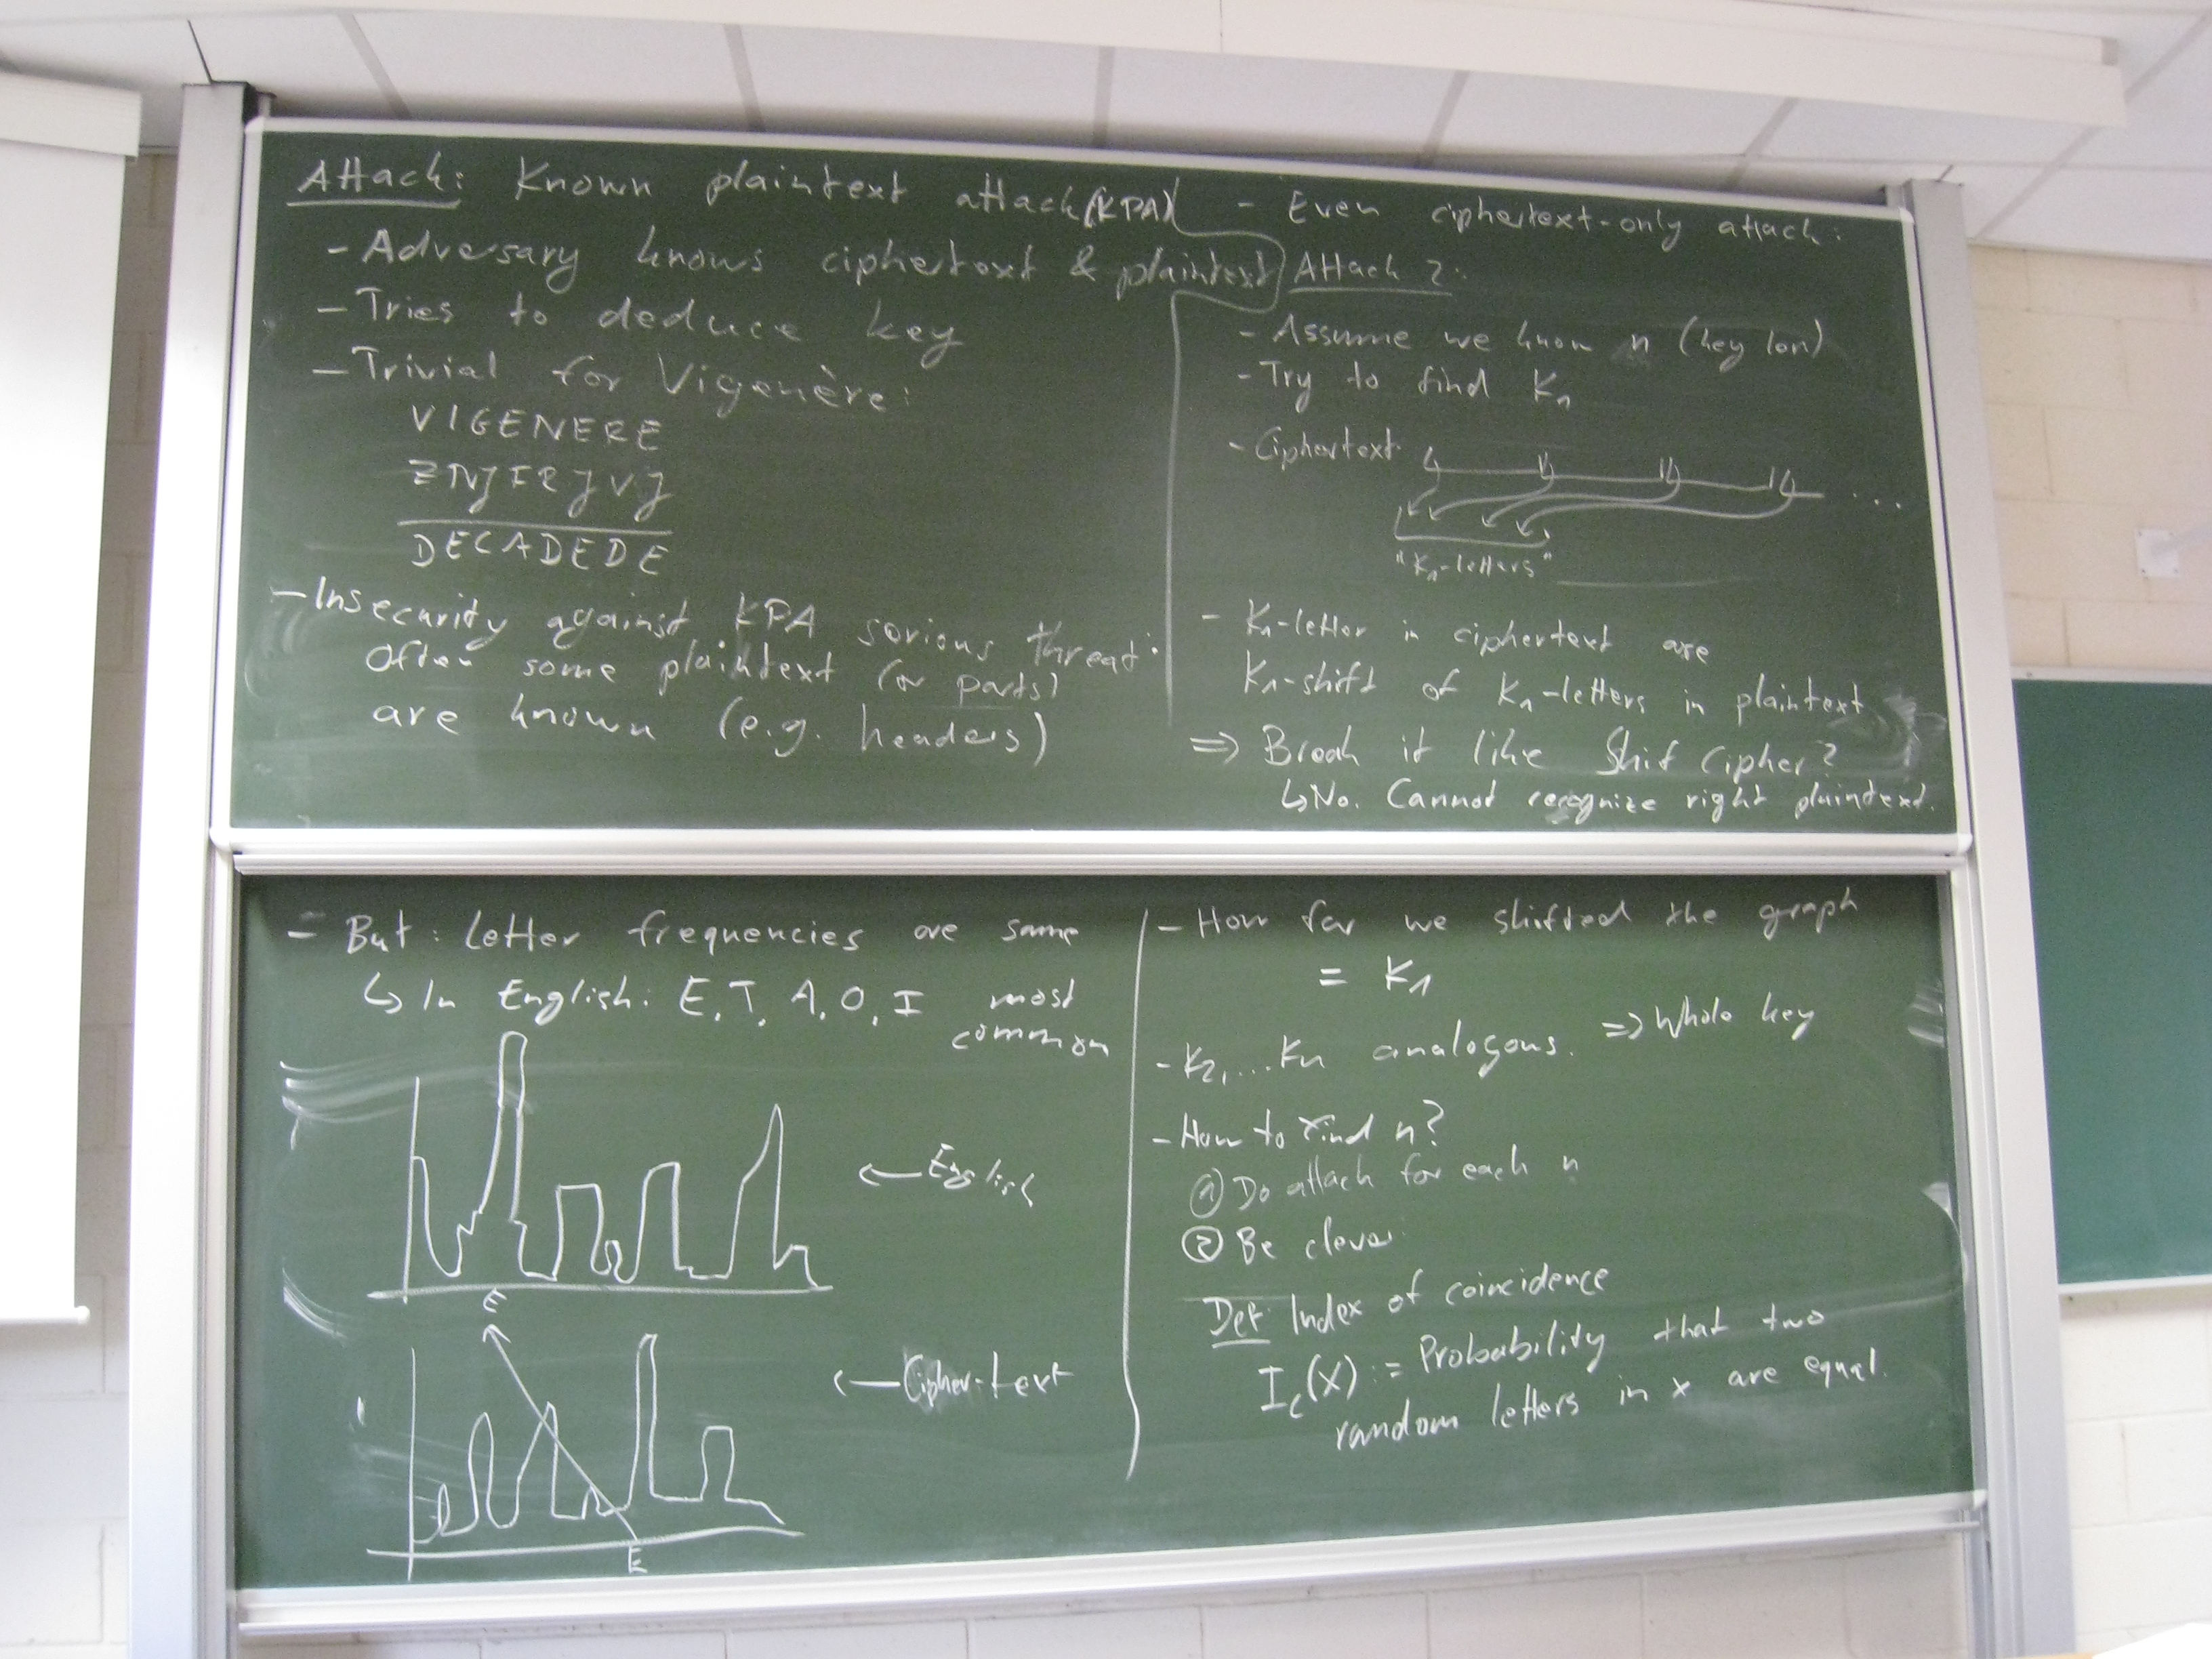 Attack: Known plaintext attack (KPA)
- Adversary knows ciphertext & plaintext
- Tries to deduce key
- Trivial for Vigenère:
VIGENERE
ZNJFRJVJ
DECADEDE
- Insecurity against KPA serious threat:
Often some plaintext (or parts)
are known (e.g. headers)
- Even ciphertext-only attack:
Attack 2:
- Assume we know n (key len)
- Try to find K1
- Ciphertext
...
"K1-letters"
- K1-letter in ciphertext are
K1-shift of K1-letters in plaintext
⇒ Break it like Shif Cipher?
↳ No. Cannot recognize right plaintext.
- But: Letter frequencies are same
↳ In English: E, T, A, O, I most
common
← English
E
← Cipher-text
E
- How far we shifted the graph
= K1
- K2, ... Kn analogous. ⇒ Whole key
- How to find n?
① Do attack for each n
② Be clever:
Def: Index of coincidence
Ic(x) := Probability that two
random letters in x are equal.